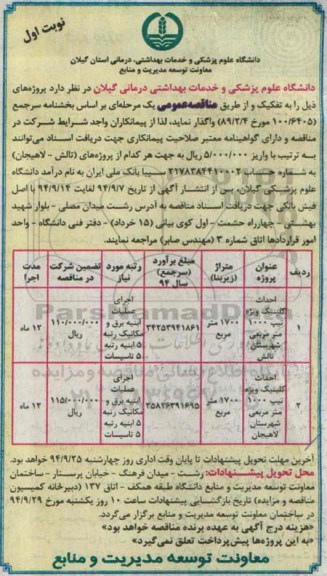 نوبت اول
دانشگاه علوم پزشکی و خدمات بهداشتی، درمانی استان گیلان
معاونت توسعه مدیریت و منابع
دانشگاه علوم پزشکی و خدمات بهداشتی درمانی گیلان در نظر دارد پروژه‌های
ذیل را به تفکیک و از طریق مناقصه عمومی یک مرحله‌ای بر اساس بخشنامه سرجمع
(۱۰۰/۶۴۰۵ مورخ ۸۹/۲/۴) واگذار نماید، لذا از پیمانکاران واجد شرایط شرکت در
مناقصه و دارای گواهینامه معتبر صلاحیت پیمانکاری جهت دریافت اسناد می‌توانند
به ترتیب با واریز ۵/۰۰۰/۰۰۰ ریال به جهت هر کدام از پروژه‌های (تالش - لاهیجان)
به شماره حساب ۲۱۷۸۳۸۴۴۱۰۰۲ سیبا بانک ملی ایران به نام درآمد دانشگاه
علوم پزشکی گیلان، پس از انتشار آگهی از تاریخ ۹۴/۹/۷ لغایت ۹۴/۹/۱۴ با اصل
فیش بانکی جهت دریافت اسناد مناقصه به آدرس رشت میدان مصلی - بلوار شهید
بهشتی - چهارراه حشمت - اول کوی بیانی (۱۵ خرداد) - دفتر فنی دانشگاه - واحد
امور قراردادها اتاق شماره ۳ (مهندس صابر) مراجعه نمایند.
ردیف | عنوان پروژه | متراژ (زیربنا) | مبلغ برآورد (سرجمع) سال ۹۴ | رتبه مورد نیاز | تضمین شرکت در مناقصه | مدت اجرا
۱ | احداث کلینیک ویژه تیپ ۱۰۰۰ متر مربعی شهرستان تالش | ۱۷۰۰ متر مربع | ۳۴۲۵۳۹۴۱۸۶۱ | اجرای عملیات ابنیه برق و مکانیک رتبه ۵ ابنیه رتبه ۵ تاسیسات | ۱۱۰/۰۰۰/۰۰۰ ریال | ۱۲ ماه
۲ | احداث کلینیک ویژه تیپ ۱۰۰۰ متر مربعی شهرستان لاهیجان | ۱۷۰۰ متر مربع | ۳۵۸۳۶۳۹۱۶۹۵ | اجرای عملیات ابنیه برق و مکانیک رتبه ۵ ابنیه رتبه ۵ تاسیسات | ۱۱۵/۰۰۰/۰۰۰ ریال | ۱۲ ماه
آخرین مهلت تحویل پیشنهادات تا پایان وقت اداری روز چهارشنبه ۹۴/۹/۲۵ خواهد بود.
محل تحویل پیشنهادات: رشت - میدان فرهنگ - خیابان پرستار - ساختمان
معاونت توسعه مدیریت و منابع دانشگاه طبقه همکف - اتاق ۱۳۷ (دبیرخانه کمیسیون
مناقصه و مزایده) تاریخ بازگشایی پیشنهادات ساعت ۱۰ روز یکشنبه مورخ ۹۴/۹/۲۹
در ساختمان معاونت توسعه مدیریت و منابع برگزار می‌گردد.
«هزینه درج آگهی به عهده برنده مناقصه خواهد بود»
«به این پروژه‌ها پیش‌پرداخت تعلق نمی‌گیرد»
معاونت توسعه مدیریت و منابع